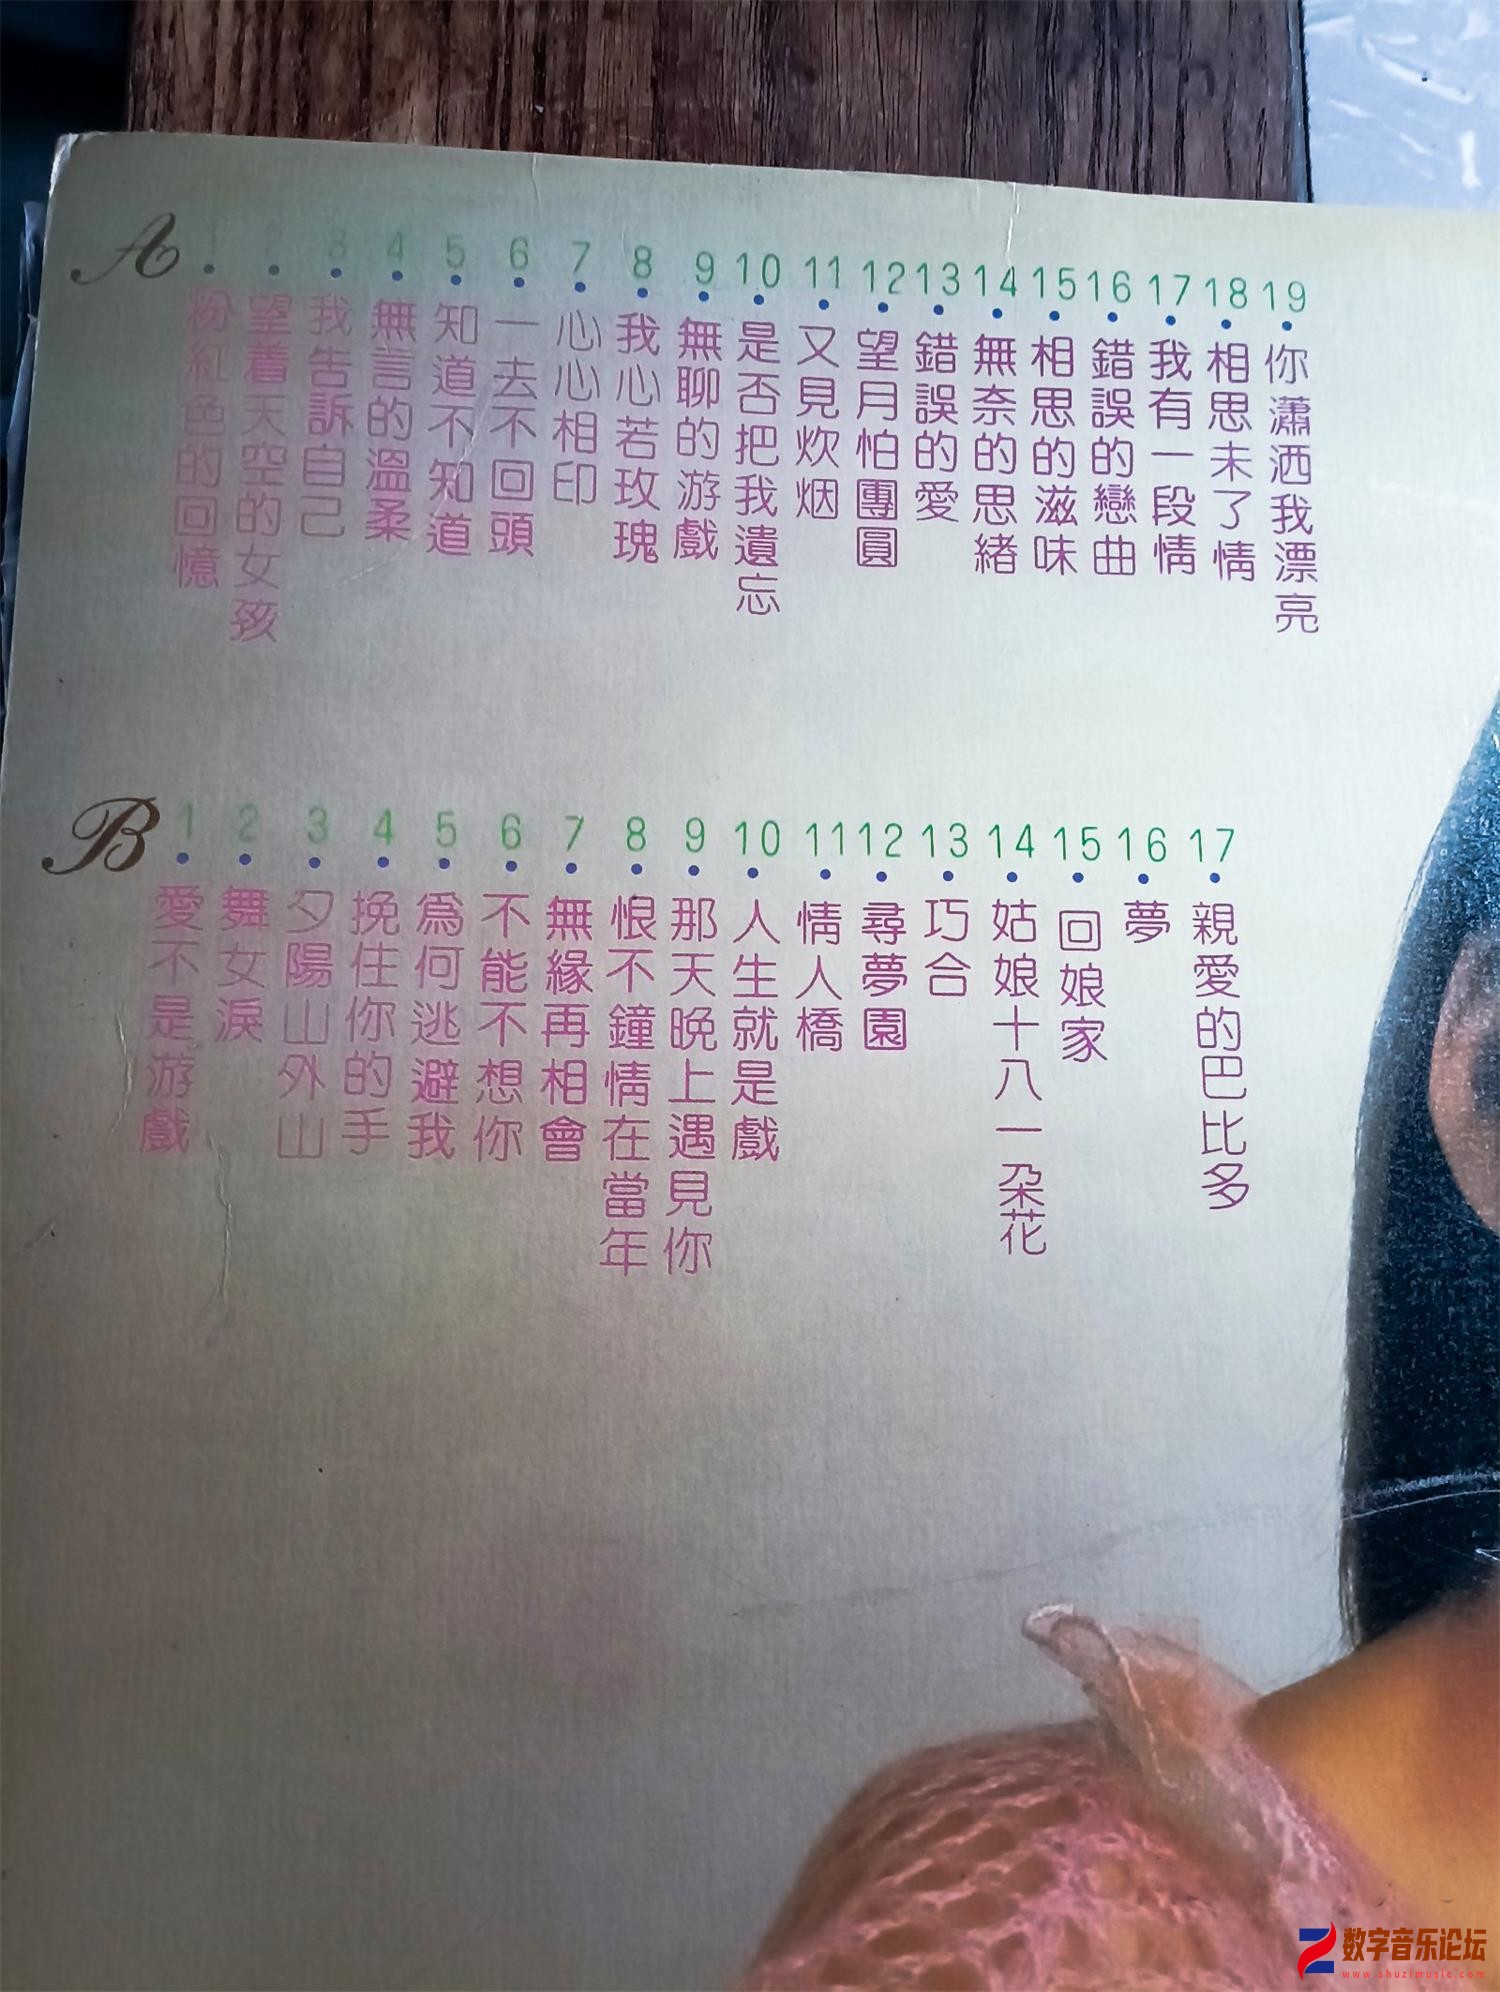 A
1 粉紅色的回憶
2 望着天空的女孩
3 我告訴自己
4 無言的溫柔
5 知道不知道
6 一去不回頭
7 心心相印
8 我心若玫瑰
9 無聊的游戲
10 是否把我遺忘
11 又見炊烟
12 望月怕團圓
13 錯誤的愛
14 無奈的思緒
15 相思的滋味
16 錯誤的戀曲
17 我有一段情
18 相思未了情
19 你瀟洒我漂亮
B
1 愛不是游戲
2 舞女淚
3 夕陽山外山
4 挽住你的手
5 為何逃避我
6 不能不想你
7 無緣再相會
8 恨不鐘情在當年
9 那天晚上遇見你
10 人生就是戲
11 情人橋
12 尋夢園
13 巧合
14 姑娘十八一朵花
15 回娘家
16 夢
17 親愛的巴比多
数字音乐论坛
www.shuzimusic.com